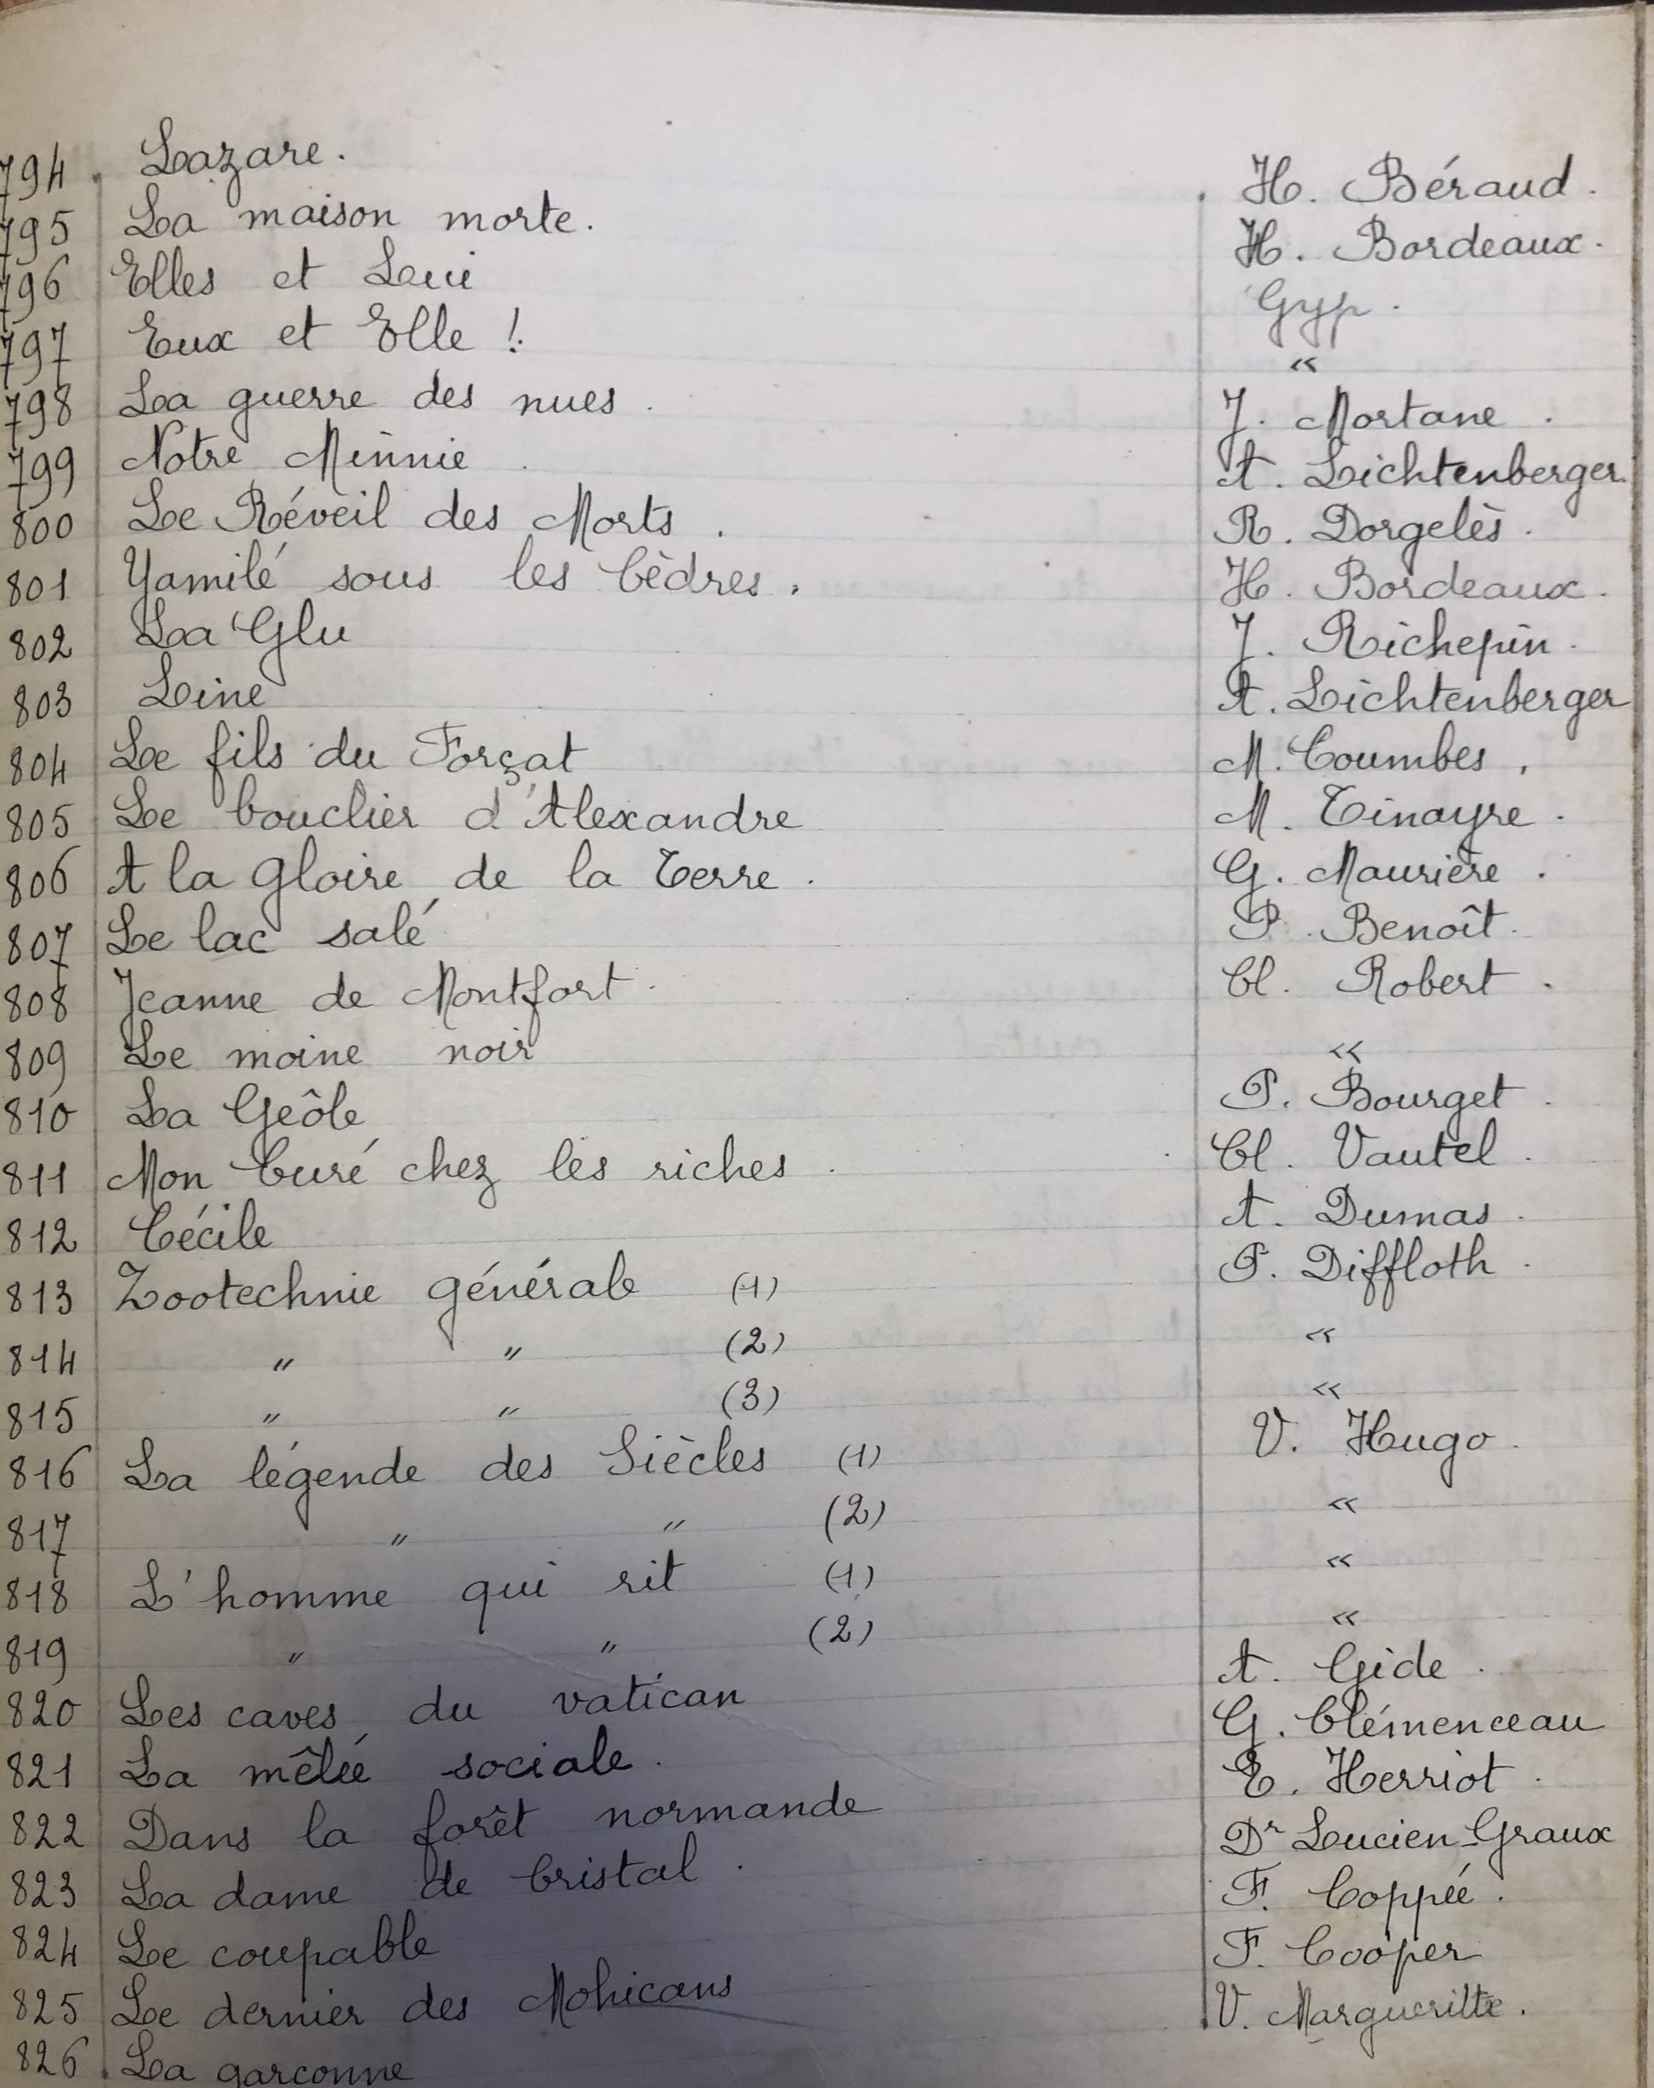 794 Lazare. H. Béraud.
795 La maison morte. H. Bordeaux.
796 Elles et Lui Gyp.
797 Eux et Elle ! «
798 La guerre des nues. J. Mortane.
799 Notre Minnie. A. Lichtenberger.
800 Le Réveil des Morts. R. Dorgelès.
801 Yamilé sous les Cèdres. H. Bordeaux.
802 La Glu J. Richepin.
803 Line A. Lichtenberger
804 Le fils du Forçat M. Coumbes.
805 Le bouclier d'Alexandre M. Tinayre.
806 A la gloire de la Terre. G. Maurière.
807 Le lac salé P. Benoît.
808 Jeanne de Montfort. Cl. Robert.
809 Le moine noir «
810 La Geôle P. Bourget.
811 Mon Curé chez les riches. Cl. Vautel.
812 Cécile A. Dumas.
813 Zootechnie générale (1) P. Diffloth.
814 " " (2) «
815 " " (3) «
816 La légende des Siècles (1) V. Hugo.
817 " " (2) «
818 L'homme qui rit (1) «
819 " " (2) «
820 Les caves du vatican A. Gide.
821 La mêlée sociale. G. Clémenceau
822 Dans la forêt normande E. Herriot.
823 La dame de Cristal. Dr Lucien-Graux
824 Le coupable F. Coppée.
825 Le dernier des Mohicans F. Cooper
826 La garconne V. Margueritte.